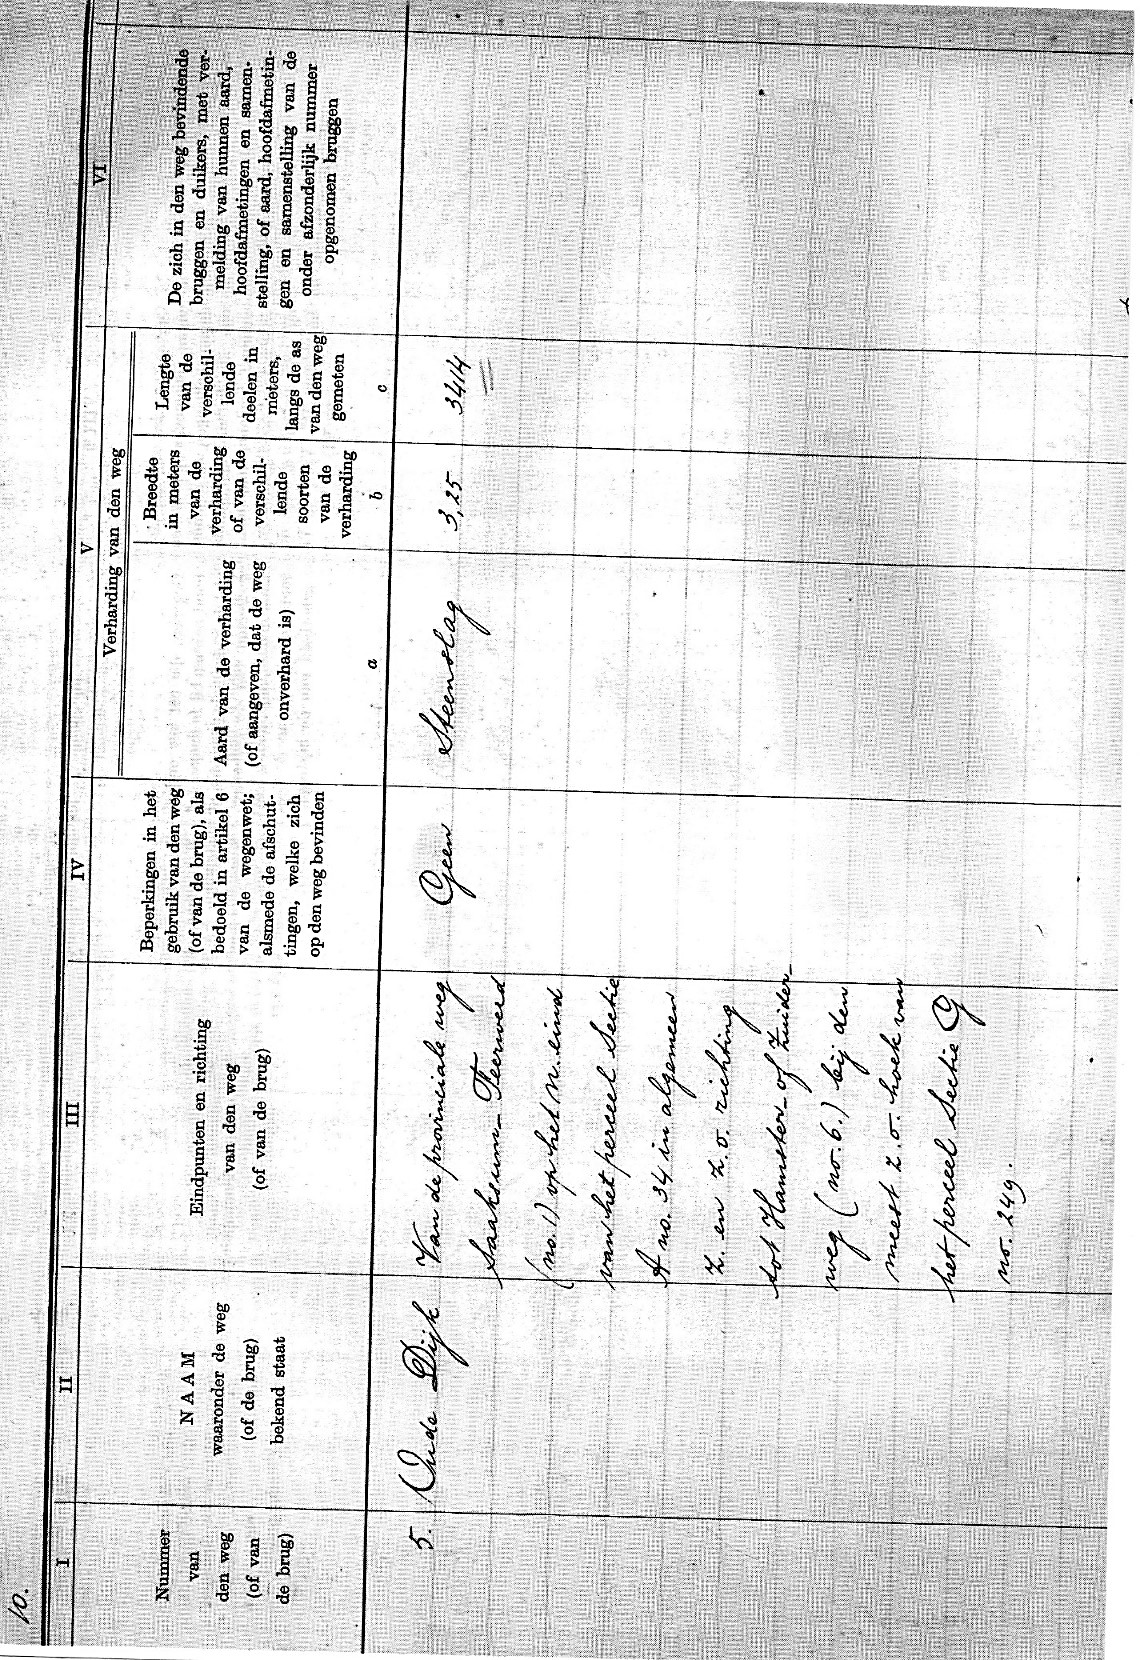 10.
I
Nummer
van
den weg
(of van
de brug)
II
NAAM
waaronder de weg
(of de brug)
bekend staat
III
Eindpunten en richting
van den weg
(of van de brug)
IV
Beperkingen in het
gebruik van den weg
(of van de brug), als
bedoeld in artikel 6
van de wegenwet;
alsmede de afschut-
tingen, welke zich
op den weg bevinden
V
Verharding van den weg
Aard van de verharding
(of aangeven, dat de weg
onverhard is)
a
Breedte
in meters
van de
verharding
of van de
verschil-
lende
soorten
van de
verharding
b
Lengte
van de
verschil-
lende
deelen in
meters,
langs de as
van den weg
gemeten
c
VI
De zich in den weg bevindende
bruggen en duikers, met ver-
melding van hunnen aard,
hoofdafmetingen en samen-
stelling, of aard, hoofdafmetin-
gen en samenstelling van de
onder afzonderlijk nummer
opgenomen bruggen
5.
Oude Dijk
Van de provinciale weg
Saaksum-Feerwerd
(no. 1) op het N. eind
van het perceel Sectie
A no. 34 in algemeen
Z. en Z.O. richting
tot Hamster- of Zuider-
weg (no. 6.) bij den
meest Z.O. hoek van
het perceel Sectie G
no. 249.
Geen
Steenslag
3,25
3414